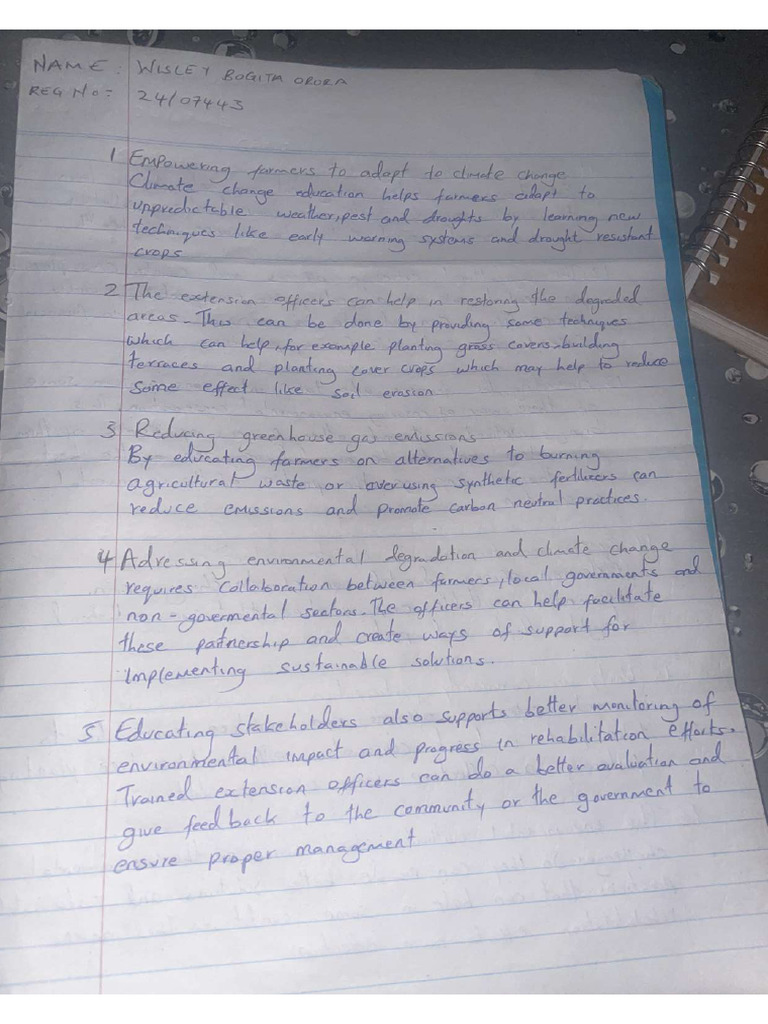 NAME: WISLEY BOGITA ORORA
REG No:- 24/07443
1 Empowering farmers to adapt to climate change
Climate change education helps farmers adapt to
unpredictable weather, pest and droughts by learning new
techniques like early warning systems and draught resistant
crops
2 The extension officers can help in restoring the degraded
areas. This can be done by providing some techniques
which can help, for example planting grass covers, building
terraces and planting cover crops which may help to reduce
some effect like soil erosion
3 Reducing greenhouse gas emissions
By educating farmers on alternatives to burning
agricultural waste or overusing synthetic fertilizers can
reduce emissions and promote carbon neutral practices.
4 Adressing environmental degradation and climate change
requires collaboration between farmers, local governments and
non-govermental sectors. The officers can help facilitate
these partnership and create ways of support for
implementing sustainable solutions.
5 Educating stakeholders also supports better monitoring of
environmental impact and progress in rehabilitation efforts.
Trained extension officers can do a better evaluation and
give feedback to the community or the government to
ensure proper management